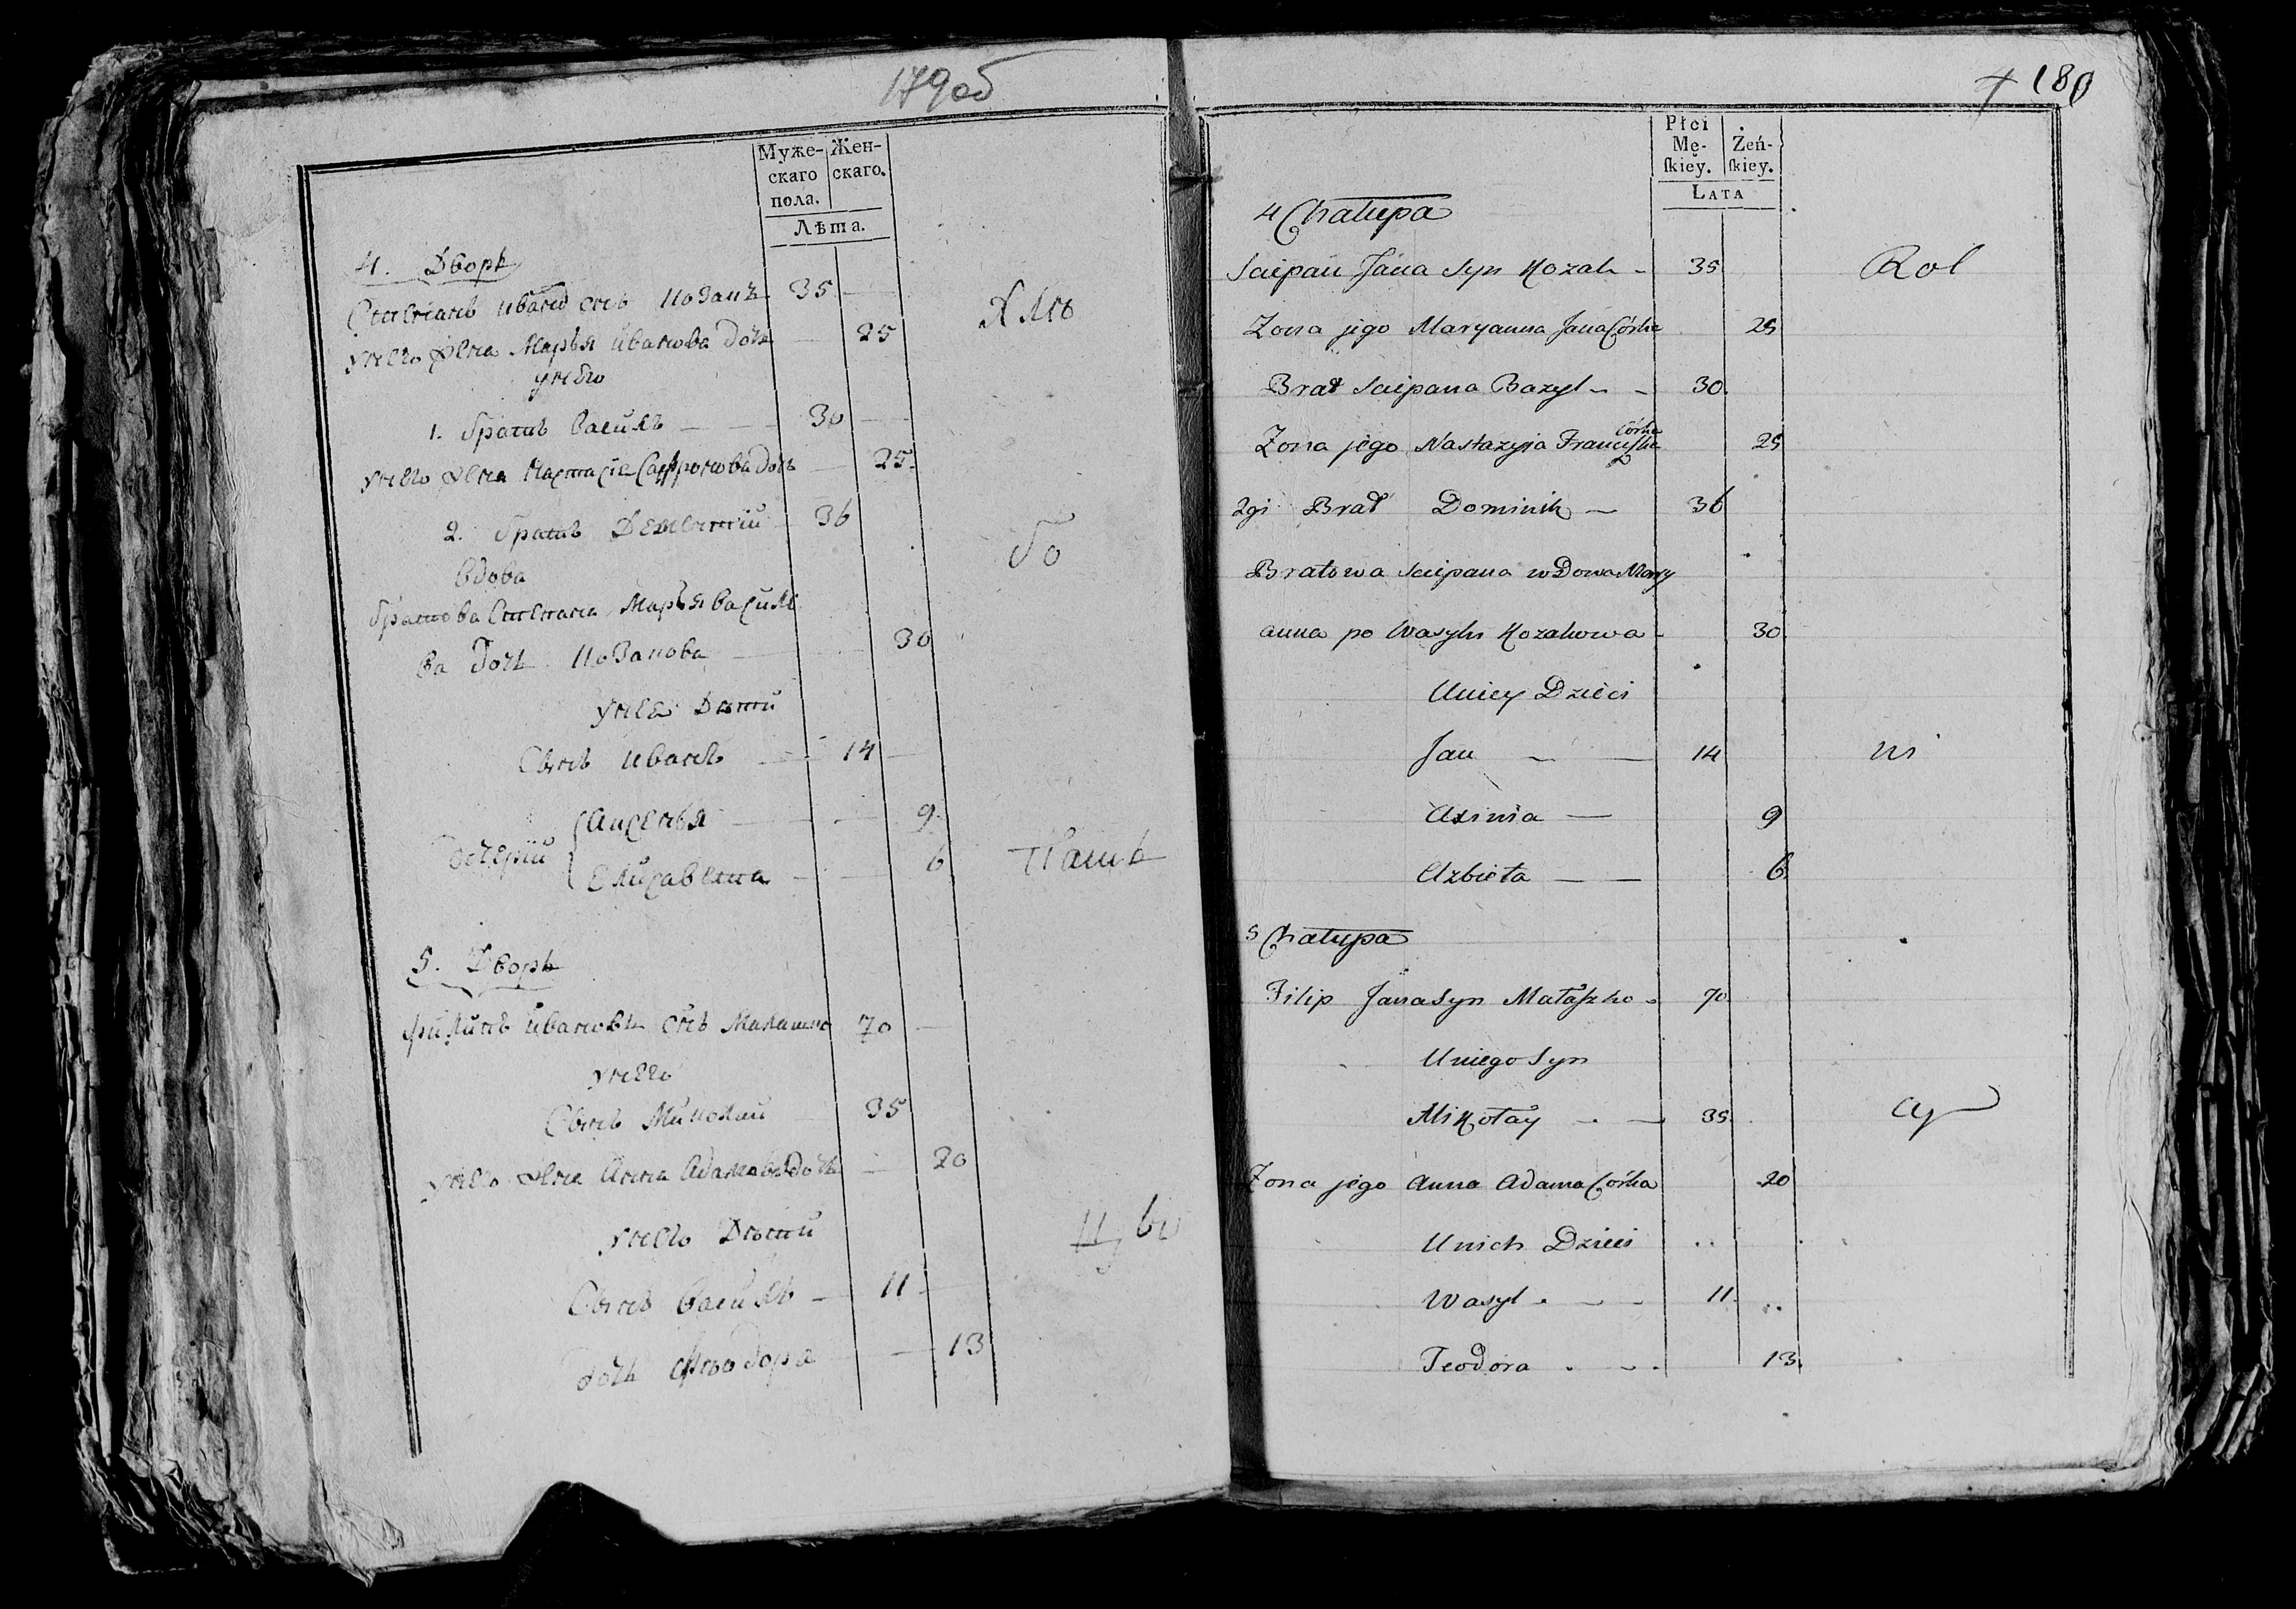 179об
Муже- Жен-
скаго скаго.
пола.
Лѣта.
4. Дворъ
Степанъ Ивановъ снъ Козакъ 35
у него Жена Марья Иванова дочь 25
у него
1. братъ Василь 30
у него Жена Настасія Сафронова дочь 25
2. братъ Дементій 36
вдова
братова Степана Марья Васильє
ва дочь Козакова 30
у нея Дети
Сынъ Иванъ 14
дочерій Аксенья 9
Елисавета 6
5. Дворъ
Филипъ Ивановъ снъ Малашко 70
у него
Сынъ Миколай 35
у него Жена Анна Адамова дочь 20
у него Дети
Сынъ Василь 11
дочь Феодора 13
Хлѣ
бо
паш
180
Płci
Mę- Żeń-
skiey. skiey.
LATA
4 Chałupa
Sciepan Jana Syn Kozak 35 Rol
Zona jego Maryanna Jana Córka 25
Brat Sciepana Bazyl 30
Zona jego Nastazyia Franciszka Córka 25
2gi Brat Dominik 36
Bratowa Sciepana wdowa Mary
anna po Wasylu Kozakowa 30
Uniey Dzieci
Jan 14 ni
Axinia 9
Elzbieta 6
5 Chałupa
Filip Jana Syn Małaszko 70
Uniego Syn
Mikołay 35 cy
Zona jego Anna Adama Córka 20
Unich Dzieci
Wasyl 11
Teodora 13